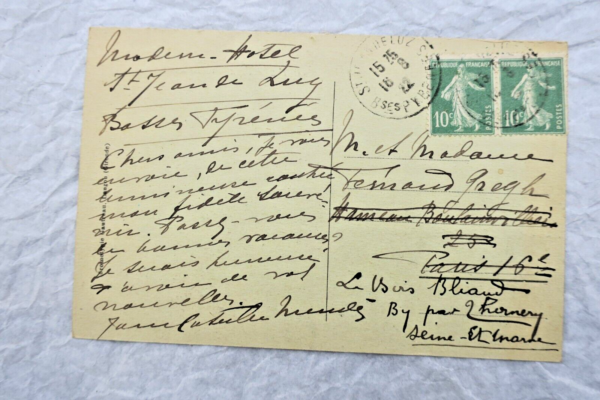 Modern-Hotel
St Jean de Luz
Basses Pyrénées
Chers amis, Je vous
envoie, de cette
lumineuse contrée
mon fidèle souve-
nir. Passez-vous
de bonnes vacances?
Je serais heureuse
d'avoir de vos
nouvelles.
Jane Catulle Mendès
ST JEAN DE LUZ
15 25
16 8
22
BSES PYRENEES
REPUBLIQUE FRANÇAISE
10c
POSTES
REPUBLIQUE FRANÇAISE
10c
POSTES
M. et Madame
Fernand Gregh
Hameau Boulainvilliers
25
Paris 16e
Le Bois Bliaud
By par Thomery
Seine-Et-Marne